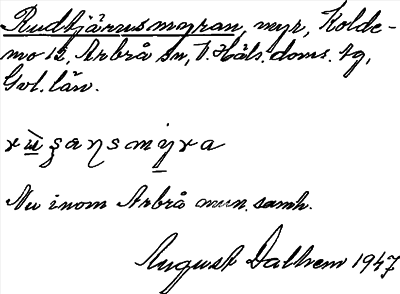 Rudtjärnsmyran, myr, Kolde-
mo 12, Arbrå sn, V. Häls. doms. tg,
Gvl. län.
Nu inom Arbrå mun. samh.
August Dalhem 1947